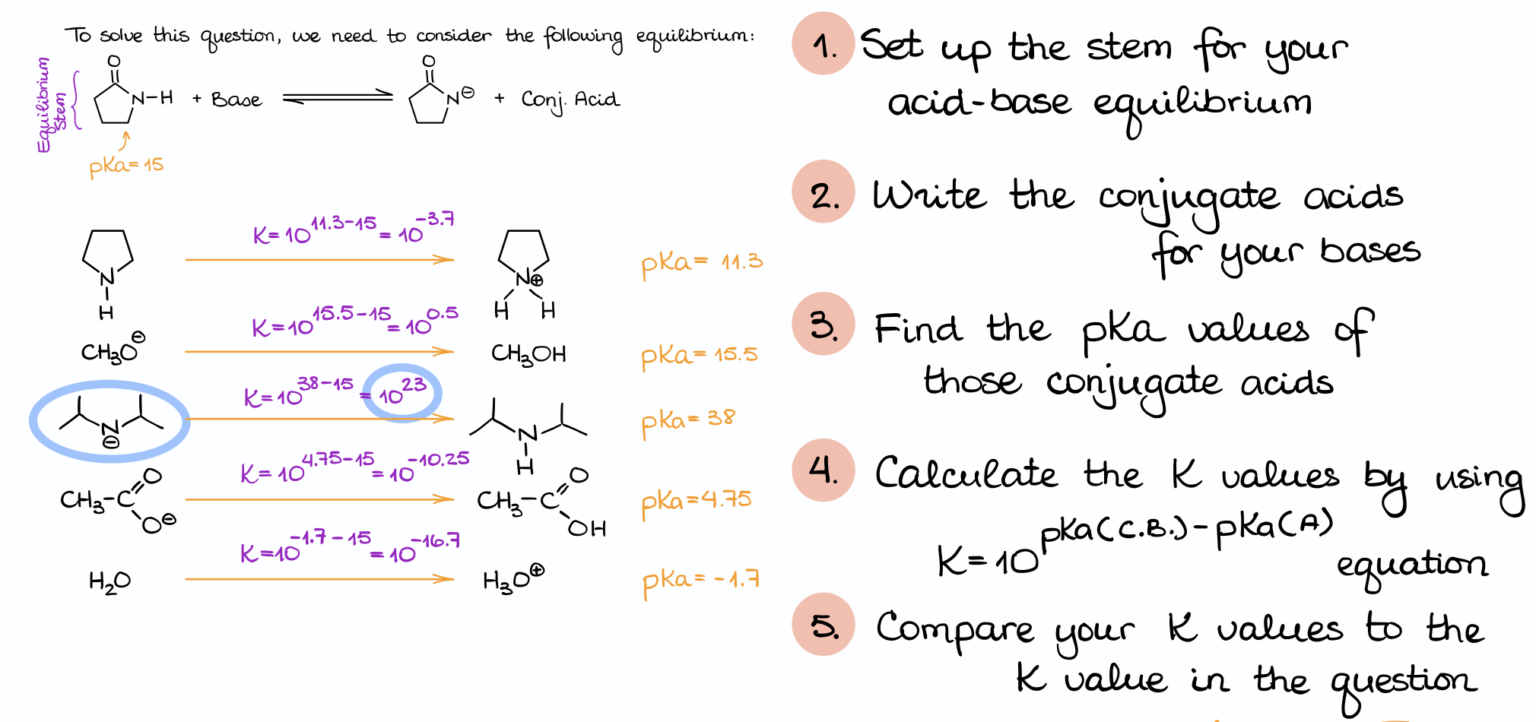 To solve this question, we need to consider the following equilibrium:
Equilibrium
Stem
O
N-H + Base ⇌ O N⊖ + Conj. Acid
pKa= 15
N
H
K=10^11.3-15 = 10^-3.7
N⊕
H H
pKa= 11.3
CH3O⊖
K=10^15.5-15 = 10^0.5
CH3OH
pKa= 15.5
N
⊖
K=10^38-15 = 10^23
N
H
pKa= 38
CH3-C
O
O⊖
K=10^4.75-15 = 10^-10.25
CH3-C
O
OH
pKa=4.75
H2O
K=10^-1.7-15 = 10^-16.7
H3O⊕
pKa= -1.7
1. Set up the stem for your
acid-base equilibrium
2. Write the conjugate acids
for your bases
3. Find the pKa values of
those conjugate acids
4. Calculate the K values by using
K=10^pKa(C.B.)-pKa(A) equation
5. Compare your K values to the
K value in the question